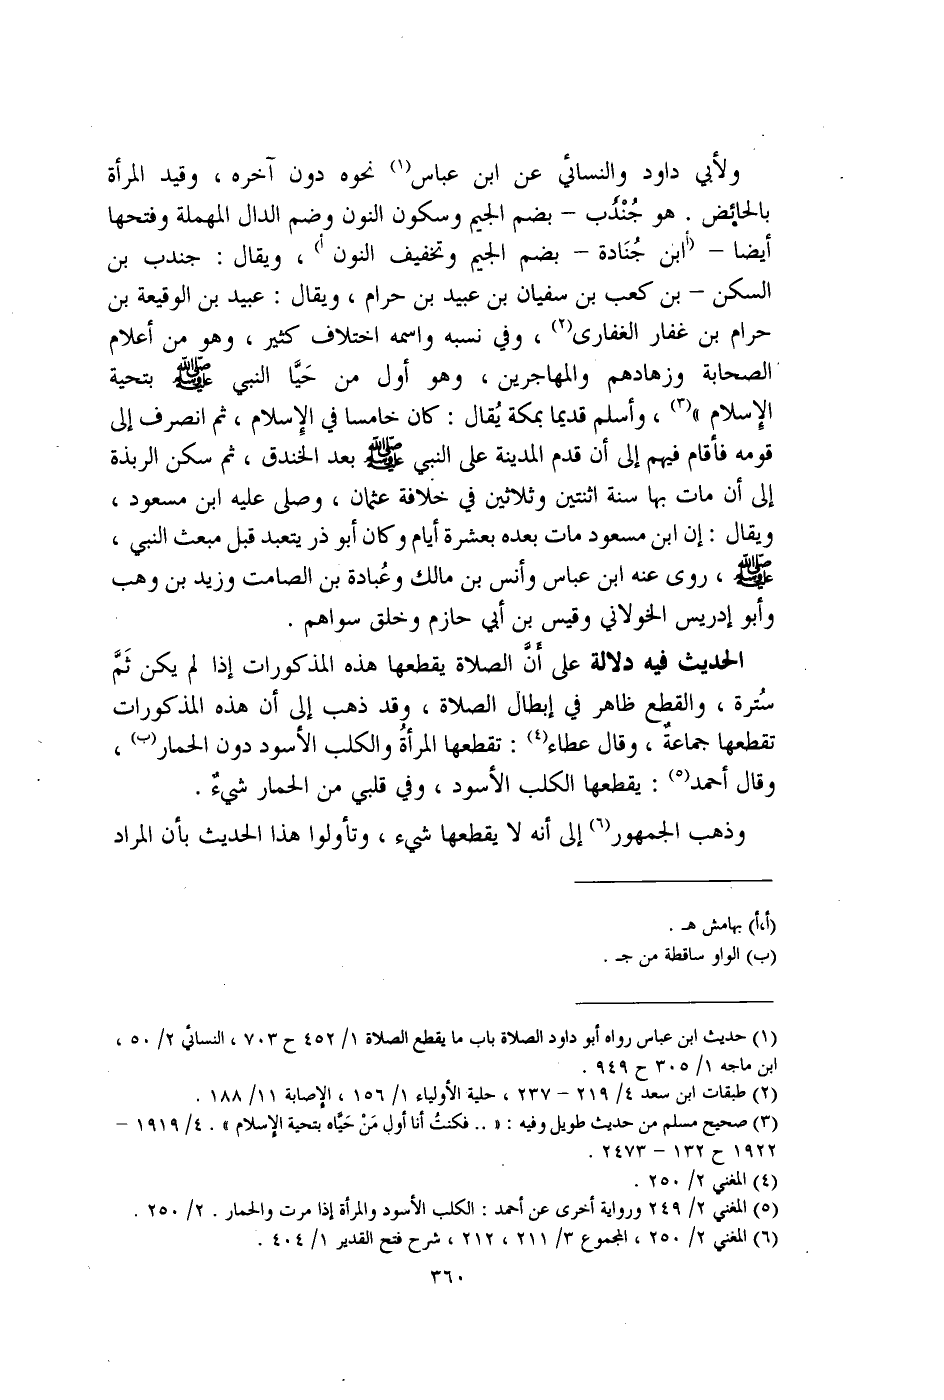 ولأبي داود والنسائي عن ابن عباس(١) نحوه دون آخره ، وقيد المرأة
بالحائض . هو جُنْدُب – بضم الجيم وسكون النون وضم الدال المهملة وفتحها
أيضا – (أابن جُنَادة – بضم الجيم وتخفيف النون أ) ، ويقال : جندب بن
السكن – بن كعب بن سفيان بن عبيد بن حرام ، ويقال : عبيد بن الوقيعة بن
حرام بن غفار الغفارى(٢) ، وفي نسبه واسمه اختلاف كثير ، وهو من أعلام
الصحابة وزهادهم والمهاجرين ، وهو أول من حَيَّا النبي ﷺ بتحية
الإسلام »(٣) ، وأسلم قديما بمكة يُقال : كان خامسا في الإسلام ، ثم انصرف إلى
قومه فأقام فيهم إلى أن قدم المدينة على النبي ﷺ بعد الخندق ، ثم سكن الربذة
إلى أن مات بها سنة اثنتين وثلاثين في خلافة عثمان ، وصلى عليه ابن مسعود ،
ويقال : إن ابن مسعود مات بعده بعشرة أيام وكان أبو ذر يتعبد قبل مبعث النبي ،
ﷺ ، روى عنه ابن عباس وأنس بن مالك وعُبادة بن الصامت وزيد بن وهب
وأبو إدريس الخولاني وقيس بن أبي حازم وخلق سواهم .
الحديث فيه دلالة على أَنَّ الصلاة يقطعها هذه المذكورات إذا لم يكن ثَمَّ
سُترة ، والقطع ظاهر في إبطال الصلاة ، وقد ذهب إلى أن هذه المذكورات
تقطعها جماعةٌ ، وقال عطاء(٤) : تقطعها المرأةُ والكلب الأسود دون الحمار(ب) ،
وقال أحمد(٥) : يقطعها الكلب الأسود ، وفي قلبي من الحمار شيءٌ .
وذهب الجمهور(٦) إلى أنه لا يقطعها شيء ، وتأولوا هذا الحديث بأن المراد
(أ،أ) بهامش هـ .
(ب) الواو ساقطة من جـ .
(١) حديث ابن عباس رواه أبو داود الصلاة باب ما يقطع الصلاة ١/ ٤٥٢ ح ٧٠٣ ، النسائي ٢/ ٥٠ ،
ابن ماجه ١/ ٣٠٥ ح ٩٤٩ .
(٢) طبقات ابن سعد ٤/ ٢١٩ – ٢٣٧ ، حلية الأولياء ١/ ١٥٦ ، الإصابة ١١/ ١٨٨ .
(٣) صحيح مسلم من حديث طويل وفيه : « .. فكنتُ أنا أول مَنْ حَيَّاه بتحية الإسلام » . ٤/ ١٩١٩ –
١٩٢٢ ح ١٣٢ – ٢٤٧٣ .
(٤) المغني ٢/ ٢٥٠ .
(٥) المغني ٢/ ٢٤٩ ورواية أخرى عن أحمد : الكلب الأسود والمرأة إذا مرت والحمار . ٢/ ٢٥٠ .
(٦) المغني ٢/ ٢٥٠ ، المجموع ٣/ ٢١١ ، ٢١٢ ، شرح فتح القدير ١/ ٤٠٤ .
٣٦٠